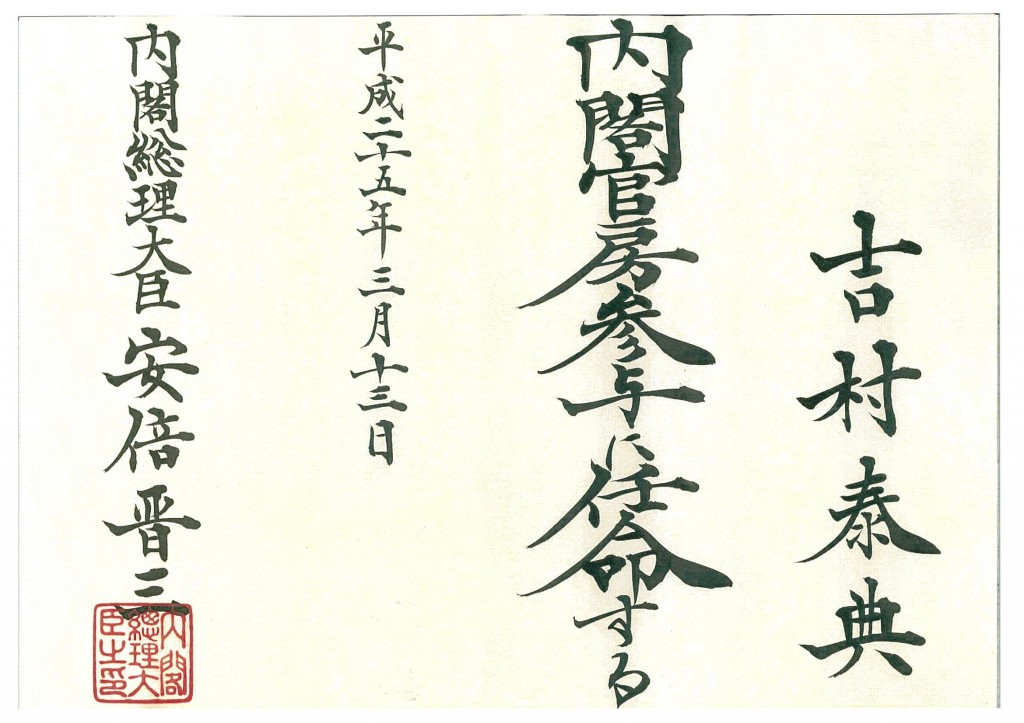 吉村泰典
内閣官房参与に任命する
平成二十五年三月十三日
内閣総理大臣 安倍晋三
内閣
總理大
臣之印